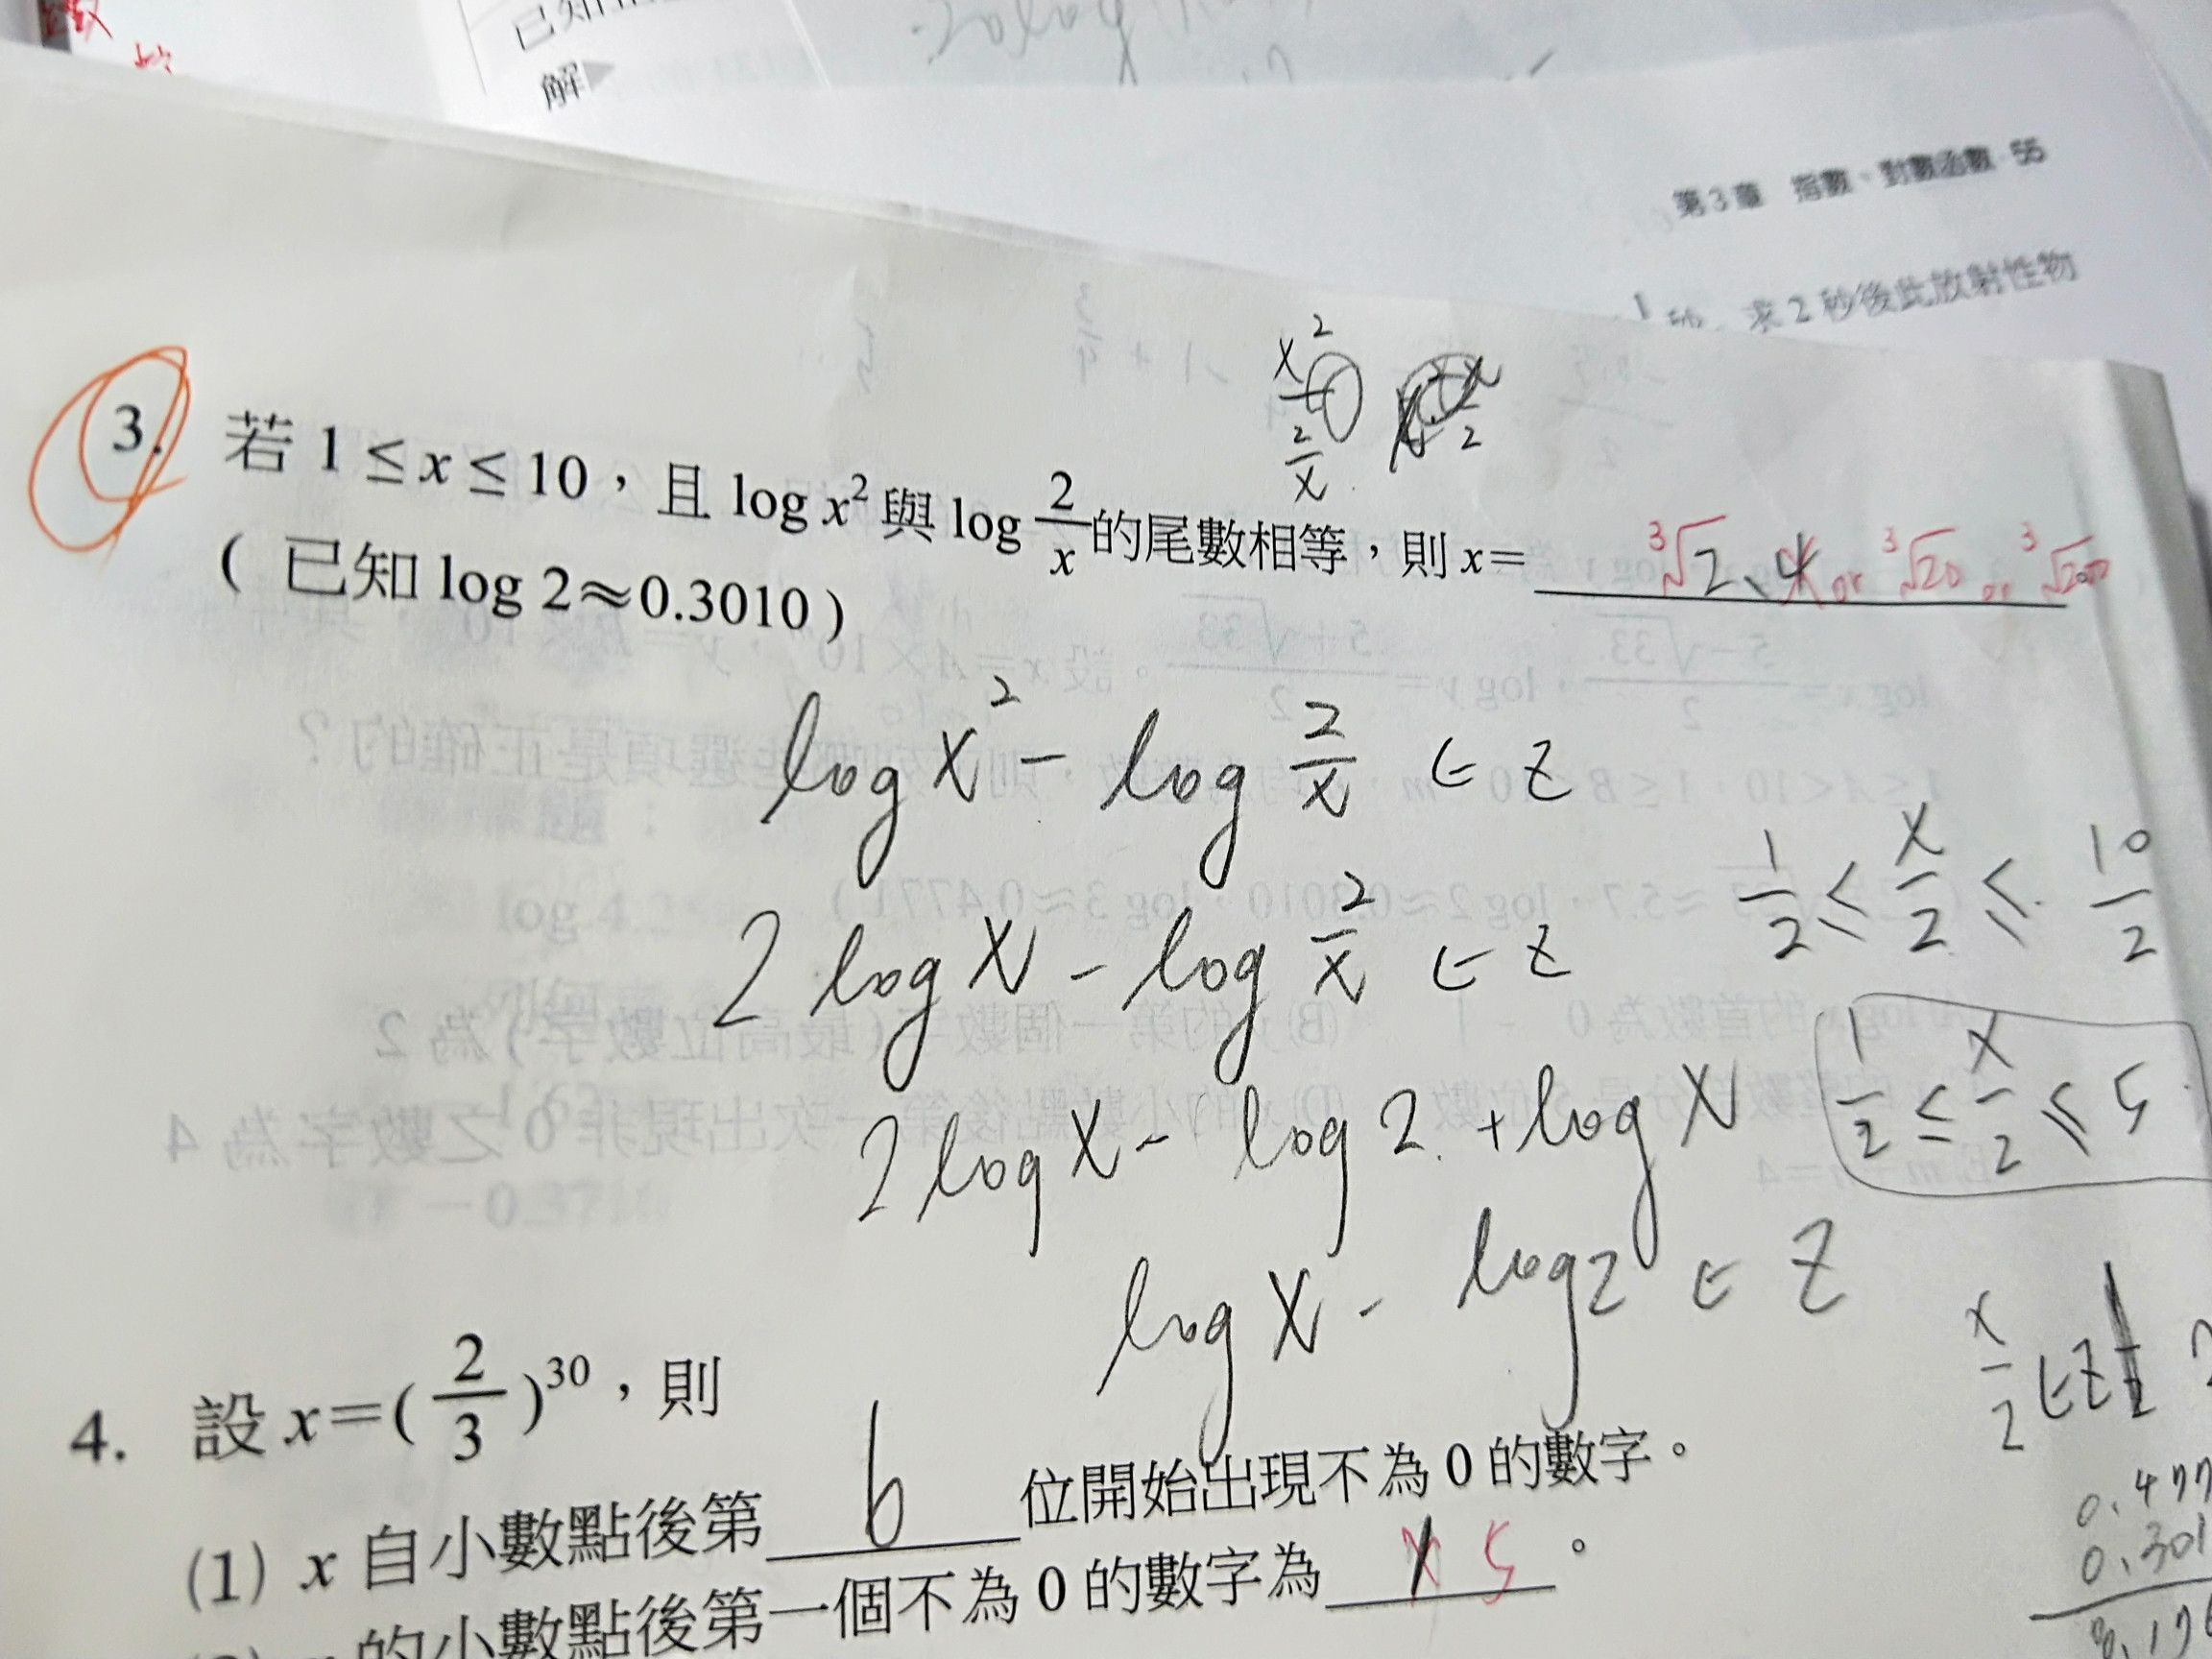 解▶
第3章 指數、對數函數 55
求2秒後此放射性物
3. 若 1 ≤ x ≤ 10，且 log x² 與 log 2/x 的尾數相等，則 x= ∛2、4 or ∛20 or ∛200
( 已知 log 2≈0.3010 )
x²
2/x
log x² - log 2/x ∈ Z
2 log x - log 2/x ∈ Z
1/2 ≤ x/2 ≤ 10/2
2 log x - log 2 + log x
1/2 ≤ x/2 ≤ 5
log x - log 2 ∈ Z
4. 設 x=(2/3)³⁰，則
(1) x 自小數點後第 6 位開始出現不為 0 的數字。
的小數點後第一個不為 0 的數字為 1 5 。
0.477
0.301